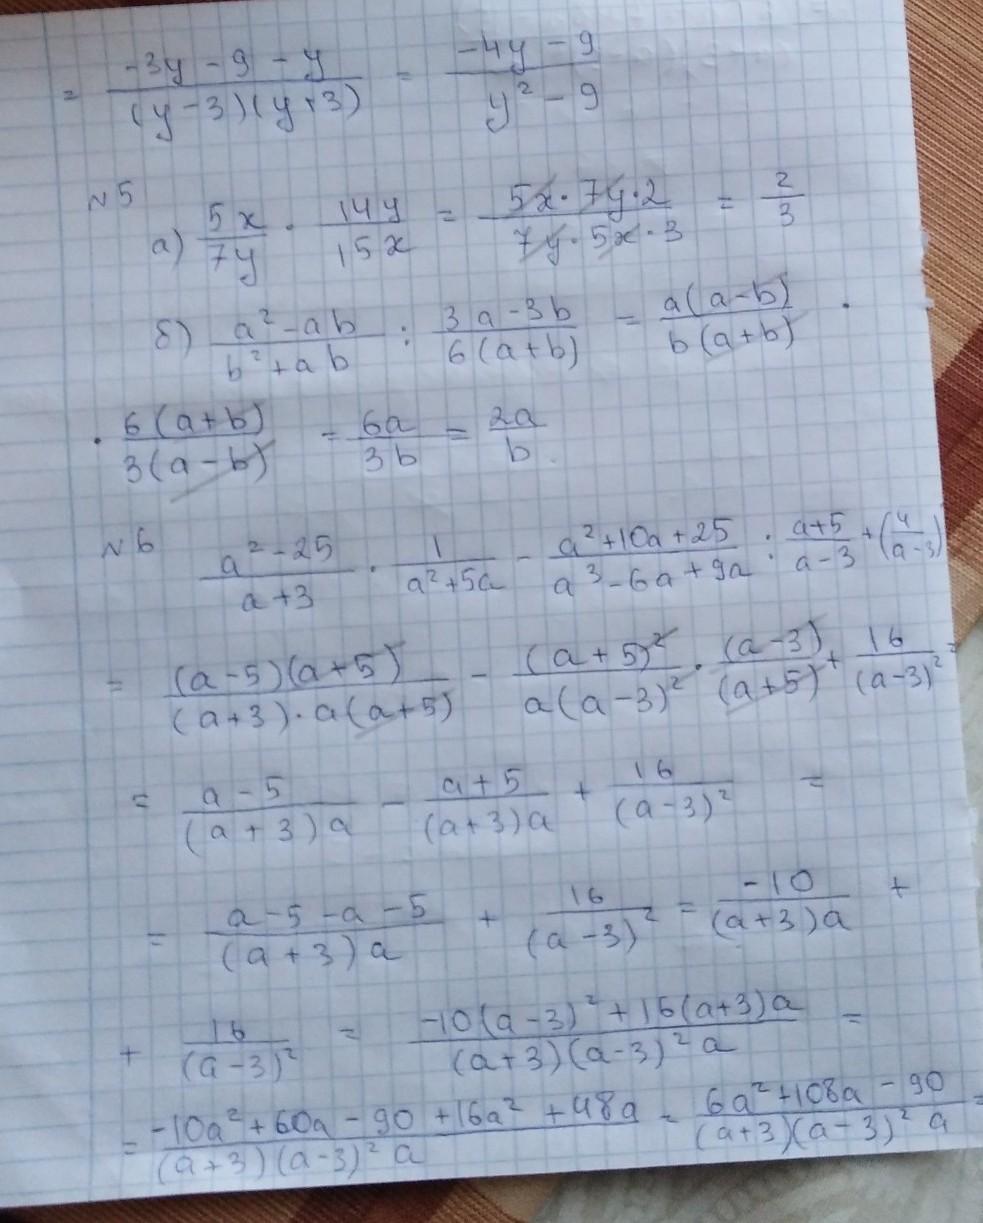 = (-3y - 9 - y)/((y-3)(y+3)) = (-4y - 9)/(y² - 9)
№5
а) 5x/7y · 14y/15x = (5x · 7y · 2)/(7y · 5x · 3) = 2/3
б) (a² - ab)/(b² + ab) : (3a - 3b)/(6(a+b)) = (a(a-b))/(b(a+b)) ·
· (6(a+b))/(3(a-b)) = 6a/3b = 2a/b.
№6 (a² - 25)/(a+3) · 1/(a² + 5a) - (a² + 10a + 25)/(a³ - 6a + 9a) : (a+5)/(a-3) + (4/(a-3)
= ((a-5)(a+5))/((a+3) · a(a+5)) - (a+5)²/(a(a-3)²) · (a-3)/(a+5) + 16/(a-3)² =
= (a-5)/((a+3)a) - (a+5)/((a+3)a) + 16/(a-3)² =
= (a-5-a-5)/((a+3)a) + 16/(a-3)² = -10/((a+3)a) +
+ 16/(a-3)² = (-10(a-3)² + 16(a+3)a)/((a+3)(a-3)²a) =
= (-10a² + 60a - 90 + 16a² + 48a)/((a+3)(a-3)²a) = (6a² + 108a - 90)/((a+3)(a-3)²a) =